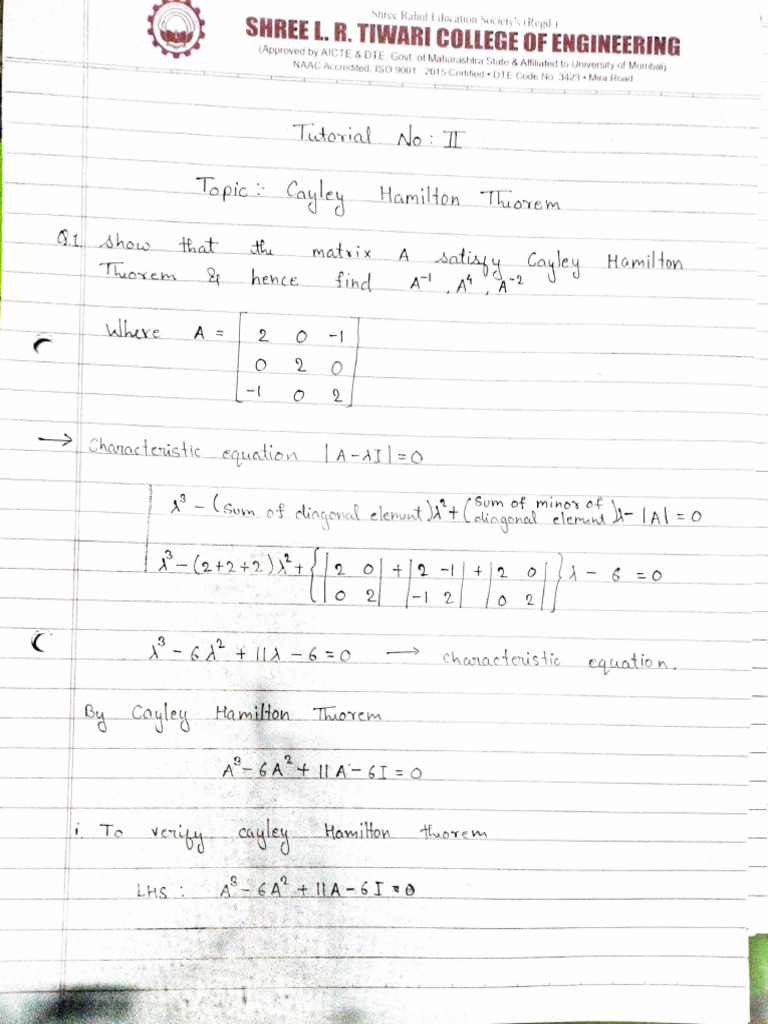 Shree Rahul Education Society's (Regd.)
SHREE L. R. TIWARI COLLEGE OF ENGINEERING
(Approved by AICTE & DTE, Govt. of Maharashtra State & Affiliated to University of Mumbai)
NAAC Accredited, ISO 9001 : 2015 Certified • DTE Code No. 3423 • Mira Road
Tutorial No : II
Topic :- Cayley Hamilton Thiorem
Q.1 show that the matrix A satisfy Cayley Hamilton
Thiorem & hence find A⁻¹, A⁴, A⁻²
Where A = [ 2 0 -1
0 2 0
-1 0 2 ]
→ Characteristic equation |A-λI| = 0
λ³ - (sum of diagonal element)λ² + (sum of minor of diagonal element)λ - |A| = 0
λ³ - (2+2+2)λ² + { |2 0| + |2 -1| + |2 0| } λ - 6 = 0
|0 2| |-1 2| |0 2|
λ³ - 6λ² + 11λ - 6 = 0 → characteristic equation.
By Cayley Hamilton Thiorem
A³ - 6A² + 11A - 6I = 0
i. To verify cayley Hamilton thorem
LHS : A³ - 6A² + 11A - 6I = 0